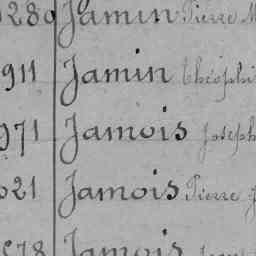 280 Jamin Pierre M
911 Jamin Théophi
971 Jamois Joseph
021 Jamois Pierre J
78 Jamois